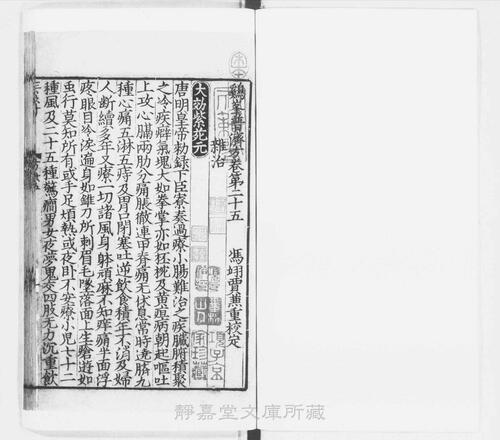 鷄峯普濟方卷第二十五
馮翊賈兼重校定
雜治
大効紫菀元
唐明皇帝勅録下臣寮奏過療小腸難治之疾臟腑積聚
之冷疾癖氣塊大如拳掌亦如柸椀及黄疸病朝起嘔吐
上攻心膈兩肋分痛脹徹連甲脊痛無休息常時遶臍九
種心痛五淋五痔及胃口閉塞吐逆飲食積年不消及婦
人斷續多年又療一切諸風身躰頑麻不知痒痛半面浮
疼眼目冷淡遍身如錐刀所刺眉毛墜落面上生瘡遊如
虫行莫知所有或手足煩熱或夜卧不安療小児七十二
種風及二十五種驚癎男女夜夢鬼交四肢無力沉重飲
靜嘉堂文庫所藏